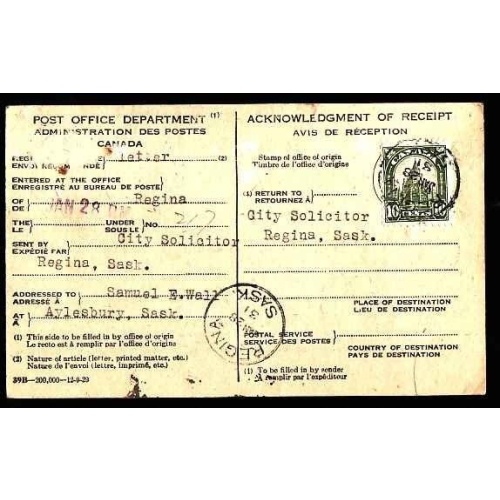 POST OFFICE DEPARTMENT (1)
ADMINISTRATION DES POSTES
CANADA
letter (2)
ENTERED AT THE OFFICE
ENREGISTRÉ AU BUREAU DE POSTE
OF
DE
Regina
JAN 28
THE
LE
UNDER
SOUS LE
NO.
SENT BY
EXPÉDIÉ PAR
City Solicitor
Regina, Sask.
ADDRESSED TO
ADRESSÉ À
Samuel E.Wall
AT
À
Aylesbury, Sask.
(1) This side to be filled in by office of origin
Le recto est à remplir par l'office d'origine
(2) Nature of article (letter, printed matter, etc.)
Nature de l'envoi (lettre, imprimé, etc.)
39B—200,000—12-9-29
ACKNOWLEDGMENT OF RECEIPT
AVIS DE RÉCEPTION
Stamp of office of origin
Timbre de l'office d'origine
(1) RETURN TO
RETOURNEZ À
City Solicitor
Regina, Sask.
10
PLACE OF DESTINATION
LIEU DE DESTINATION
POSTAL SERVICE
SERVICE DES POSTES
COUNTRY OF DESTINATION
PAYS DE DESTINATION
(1) To be filled in by sender
À remplir par l'expéditeur
REGINA
SASK.
31